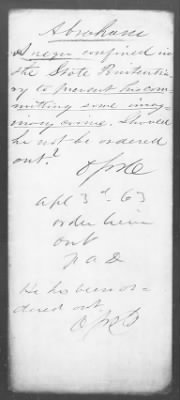 Abraham
A negro confined in
the State Penitenti-
ary to prevent his com-
mitting some imag-
inary crime. Should
he not be ordered
out?
apl 3d 63
order him
out
He has been or-
dered out.